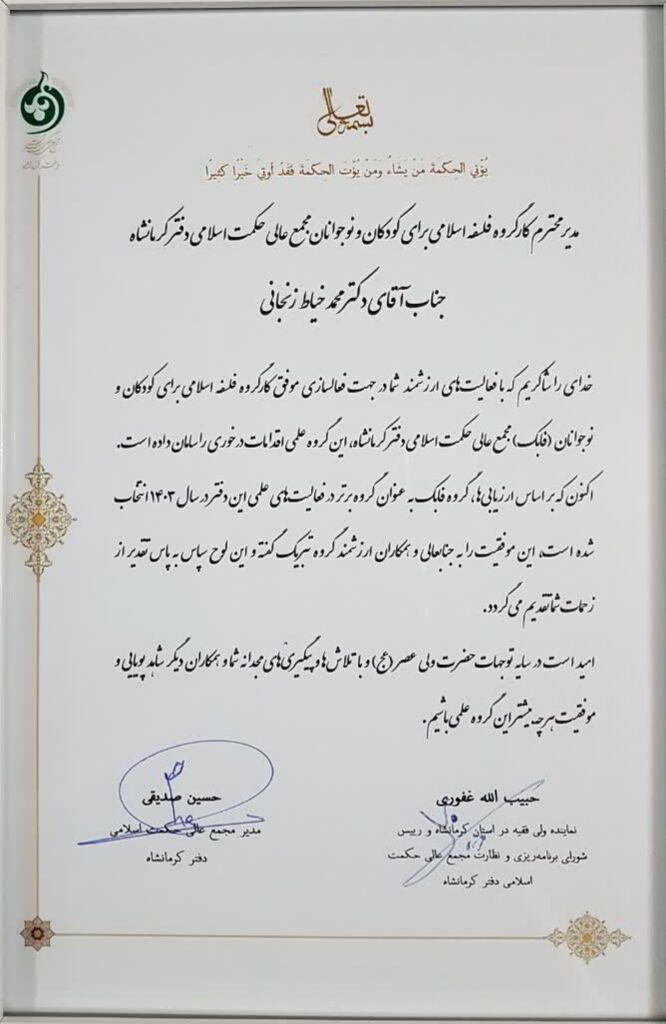 بسمه تعالی
یُؤْتِي الحِکمَةَ مَنْ یَشَاءُ وَمَنْ یُؤْتَ الحِکمَةَ فَقَدْ أُوتِيَ خَيْرًا کثیرًا
مدیر محترم کارگروه فلسفه اسلامی برای کودکان و نوجوانان مجمع عالی حکمت اسلامی دفتر کرمانشاه
جناب آقای دکتر محمد خیاط زنجانی
خدای را شاکریم که با فعالیت‌های ارزشمند شما در جهت فعالسازی موفق کارگروه فلسفه اسلامی برای کودکان و
نوجوانان (فابک) مجمع عالی حکمت اسلامی دفتر کرمانشاه، این گروه علمی اقدامات درخوری را سامان داده است.
اکنون که بر اساس ارزیابی‌ها، گروه فابک به عنوان گروه برتر در فعالیت‌های علمی این دفتر در سال ۱۴۰۳ انتخاب
شده است، این موفقیت را به جنابعالی و همکاران ارزشمند گروه تبریک گفته و این لوح سپاس به پاس تقدیر از
زحمات شما تقدیم می‌گردد.
امید است در سایه توجهات حضرت ولی عصر (عج) و با تلاش‌ها و پیگیری‌های مجدانه شما و همکاران دیگر شاهد پویایی و
موفقیت هرچه بیشتر این گروه علمی باشیم.
حبیب الله غفوری
نماینده ولی فقیه در استان کرمانشاه و رییس
شورای برنامه‌ریزی و نظارت مجمع عالی حکمت
اسلامی دفتر کرمانشاه
حسین صدیقی
مدیر مجمع عالی حکمت اسلامی
دفتر کرمانشاه